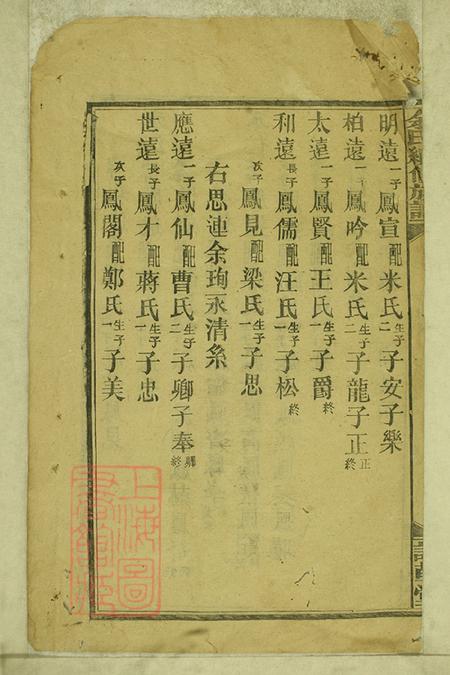 余氏續修族譜
明遠一子鳳宣配米氏生子二子安子樂
柏遠一子鳳吟配米氏生子二子龍子正正終
太遠一子鳳賢配王氏生子一子爵終
利遠長子鳳儒配汪氏生子一子松終
次子鳳見配梁氏生子一子思
右思連余珣永清系
應遠一子鳳仙配曹氏生子二子卿子奉卿終
世遠長子鳳才配蔣氏生子一子忠
次子鳳閣配鄭氏生子一子美
上海圖書館藏